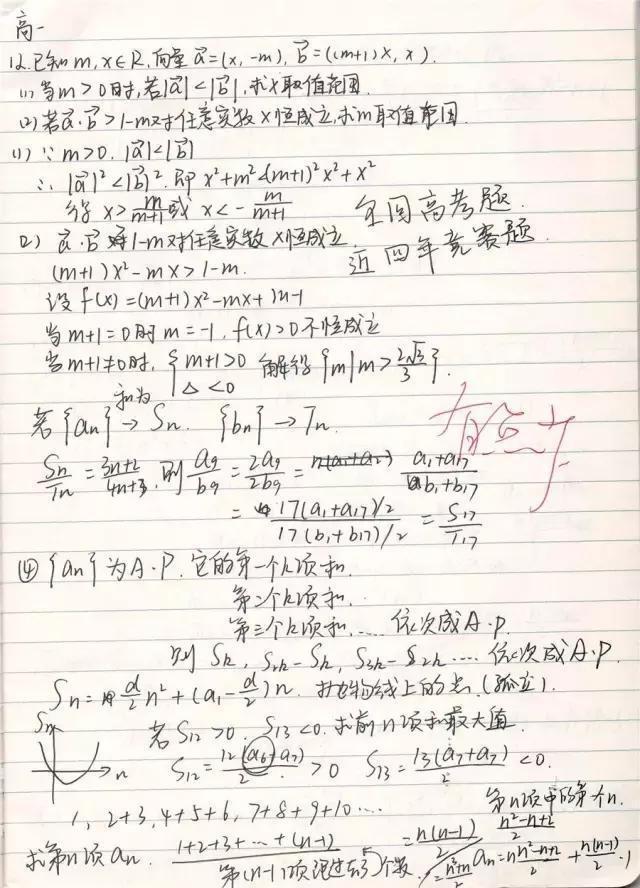 高一
12.已知m,x∈R,向量a⃗=(x,-m),b⃗=((m+1)x,x).
(1)当m>0时,若|a⃗|<|b⃗|,求x取值范围.
(2)若a⃗·b⃗>1-m对任意实数x恒成立,求m取值范围.
(1)∵m>0.|a⃗|<|b⃗|
∴|a⃗|²<|b⃗|².即x²+m²<(m+1)²x²+x²
得x>m/(m+1)或x<-m/(m+1)
全国高考题.
2) a⃗·b⃗>1-m对任意实数x恒成立.
近四年竞赛题.
(m+1)x²-mx>1-m.
设f(x)=(m+1)x²-mx+m-1
当m+1=0时m=-1,f(x)>0不恒成立
当m+1≠0时,{m+1>0 △<0 解得{m|m>2√3/3}.
和为
若{an}→Sn. {bn}→Tn.
Sn/Tn=(3n+2)/(4n+3).则a9/b9=2a9/2b9=(a1+a17)/(b1+b17)
=(17(a1+a17)/2)/(17(b1+b17)/2)=S17/T17
④{an}为A·P.它的第一个k项和.
第二个k项和.
第三个k项和,……依次成A.P.
则Sk,S2k-Sk,S3k-S2k……依次成A.P.
Sn=d/2n²+(a1-d/2)n.抛物线上的点.(孤立).
Sn
n
若S12>0.S13<0.求前n项和最大值.
S12=12(a6+a7)/2>0 S13=13(a7+a7)/2<0.
1,2+3,4+5+6,7+8+9+10…
第n项中的第个n.
(n²-n+2)/2
求第n项an. 1+2+3+…+(n-1)=n(n-1)/2
第(n-1)项 个数
=(n²+n)/2 an=n(n²-n+2)/2+n(n-1)/2·1